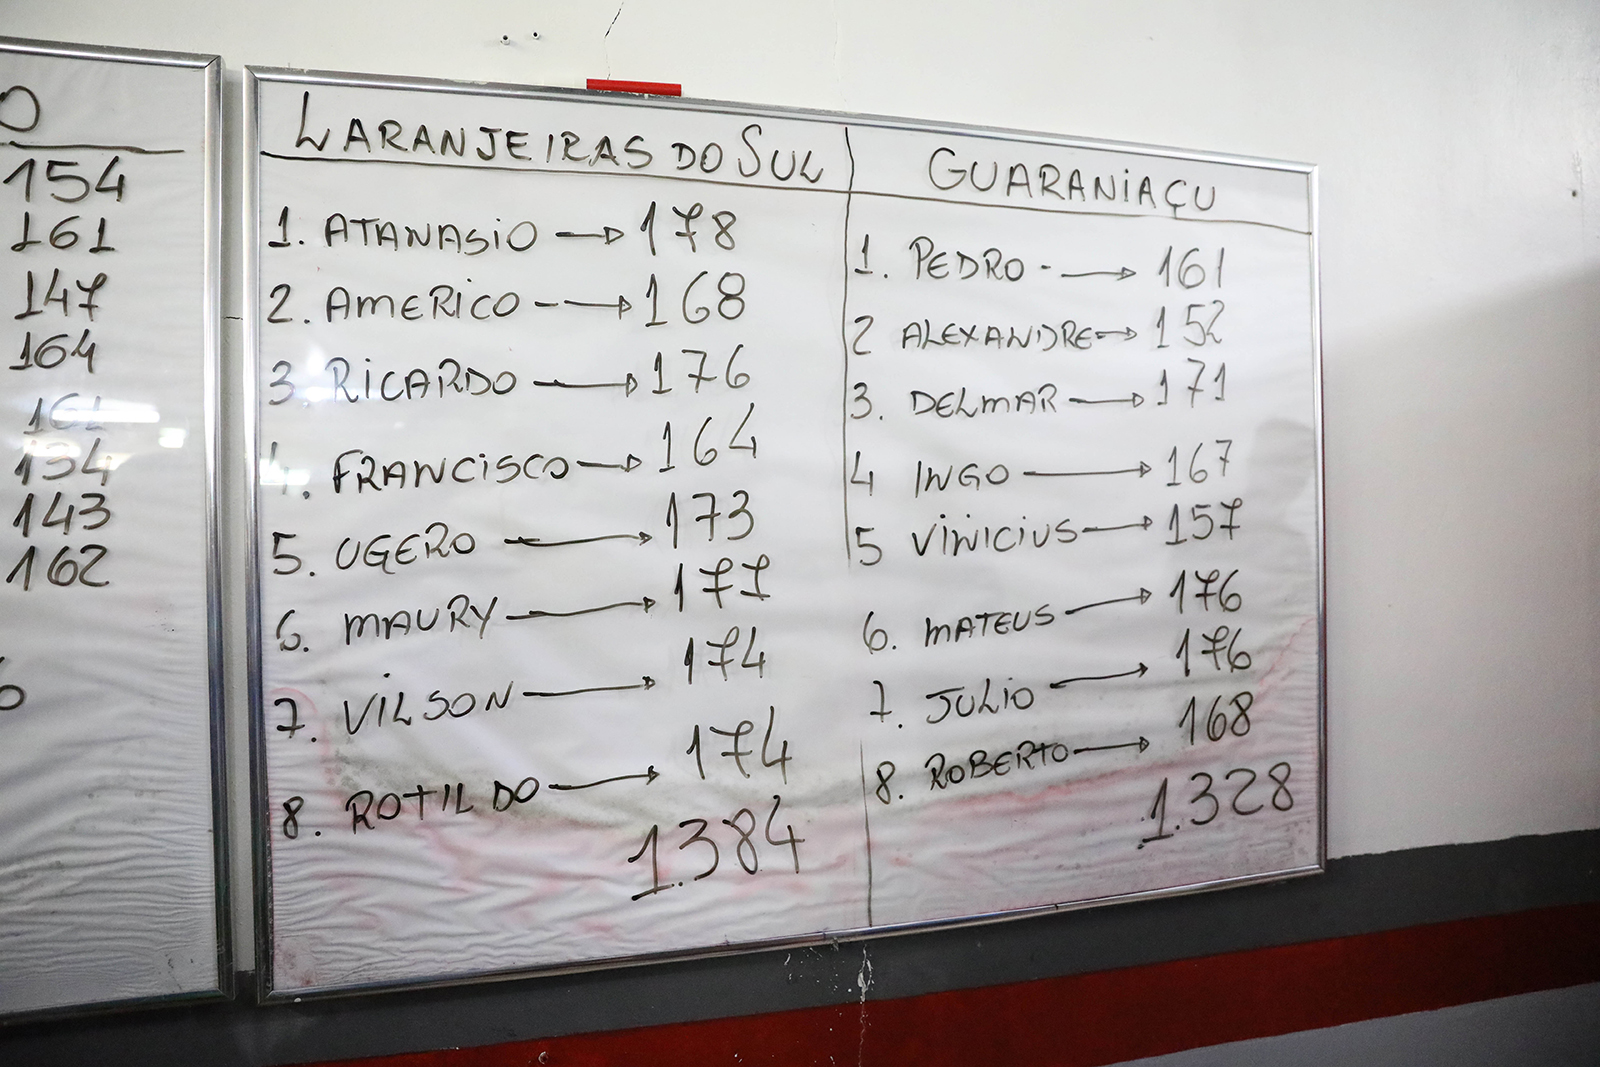 O
154
161
147
164
161
134
143
162
LARANJEIRAS DO SUL
1. ATANASIO → 178
2. AMERICO - → 168
3. RICARDO → 176
4. FRANCISCO → 164
5. UGERO → 173
6. MAURY → 177
7. VILSON → 174
8. ROTILDO → 174
1.384
GUARANIAÇU
1. PEDRO - → 161
2 ALEXANDRE → 152
3. DELMAR → 171
4 INGO → 167
5 VINICIUS → 157
6. MATEUS → 176
7. JULIO → 176
8. ROBERTO → 168
1.328